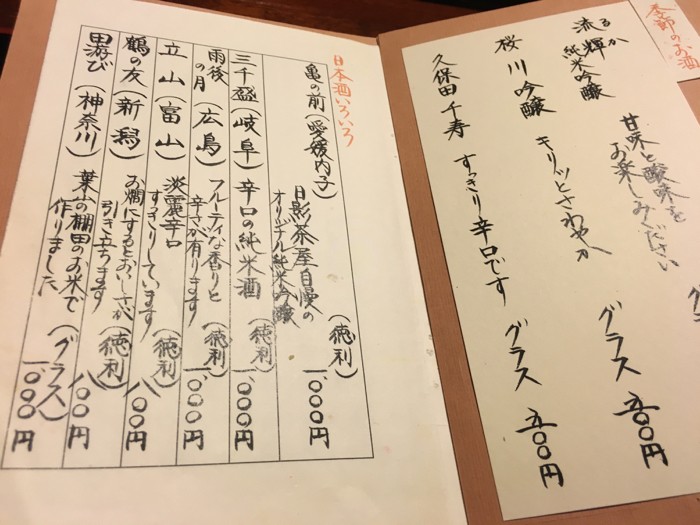 季節のお酒
流輝 純米吟醸
るか
甘味と酸味を
お楽しみください
グラス
桜川吟醸 キリッとさわやか グラス 五〇〇円
久保田千寿 すっきり辛口です グラス 五〇〇円
日本酒いろいろ
亀の前(愛媛内子)
日影茶屋自慢の
オリジナル純米吟醸
(徳利) 一、〇〇〇円
三千盛(岐阜) 辛口の純米酒 (徳利) 一、〇〇〇円
雨後の月(広島)
フルーティな香りと
辛さが有ります
(徳利) 一、〇〇〇円
立山(富山)
淡麗辛口
すっきりしています
(徳利) 八〇〇円
鶴の友(新潟)
お燗にするとおいしさが
引き立ちます
(徳利) 八〇〇円
田遊び(神奈川)
葉山の棚田のお米で
作りました
(グラス) 一、〇〇〇円